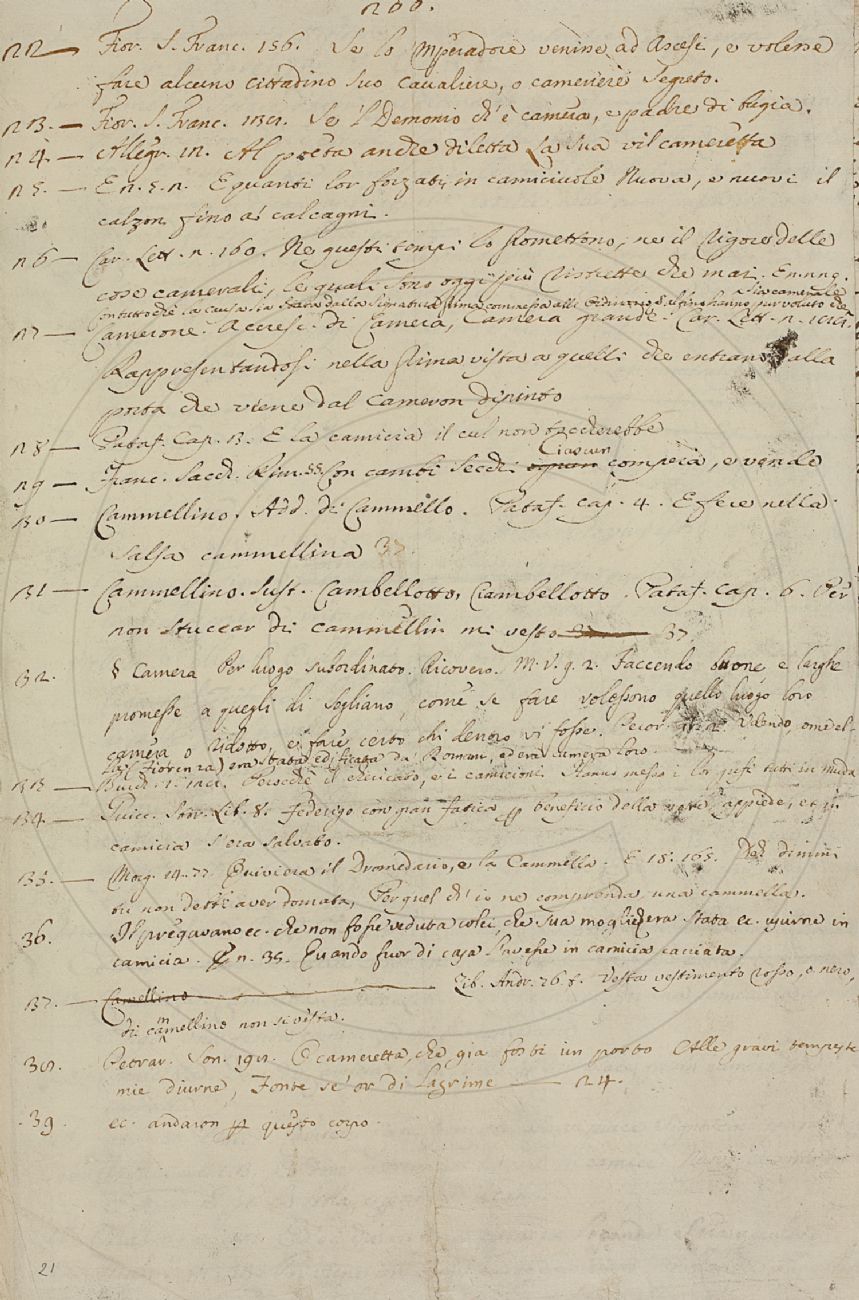 200.
122 — Fior. S. Franc. 156. Se lo Mperadore venisse ad Ascesi, e volesse
fare alcuno cittadino suo cavaliere, o cameriere segreto.
123. — Fior. S. Franc. Se 'l Demonio ch' è e padre di bugia.
124 — Allegr. Al poeta anche diletta La sua vil cameretta
125. — E quanti lor forzati, in camiciuole Nuova, e nuovi il
calzon fino a' calcagni.
126 — Car. Lett. n. 160. Ne questi tempi lo promettono, ne il rigore delle
cose camerali, le quali sono oggi più ristrette che mai.
127 — Camerone. Accresc. di Camera, Camera grande. Car. Lett. n.
Rappresentandosi nella prima vista a quelli che entrano dalla
porta che viene dal cameron dipinto
128 — Pataff. Cap. E la camicia il cul non toccherebbe
Ciascun
129 — Franc. Sacch. Rim. 55 Con cambi secchi ognun compera, e vende
130 — Cammellino. Add. di Cammello. Pataf. cap. 4. E fece nella
salsa cammellina 37.
131 — Cammellino. Sust. Cambellotto, Ciambellotto. Pataf. cap. 6. Per
non stuccar di cammellin mi vesto 37.
132. § Camera Per luogo subordinato. Ricovero. M. V. 9. 2. Faccendo buone e larghe
promesse a quegli di Sogliano, come se fare volessono quello luogo loro
camera o ridotto, e fare certo chi dentro vi fosse. Pecor.
(Fiorenza) era stata edificata da' Romani, ed era camera loro.
133 — i camicioni. messo i lor pesi tutti in muda
134 — Guicc. Stor. Lib. 8. Federigo con gran fatica p beneficio della notte, appiede, et in
camicia s'era salvato.
135. — Morg. 14. 77. Quivi era il Dromedario, e la Cammella. E 18. 165. Deh dimmi
tu non detti aver domata, Per quel ch' io ne comprenda una cammella.
36. Il pregavano ec. che non fosse veduta colei, che sua moglie era stata ec. uscirne in
camicia. E n. 38. Quando fuor di casa l'avesse in camicia cacciata.
137. — Camellino — Lib. Andr. 26. Vesta vestimento rosso, o nero,
di cammellino non si vesta.
38. Petrar. Son. O cameretta, che già fosti un porto Alle gravi tempeste
mie diurne, Fonte se' or di lagrime — 24.
39. ec. andaron p questo corpo.
21